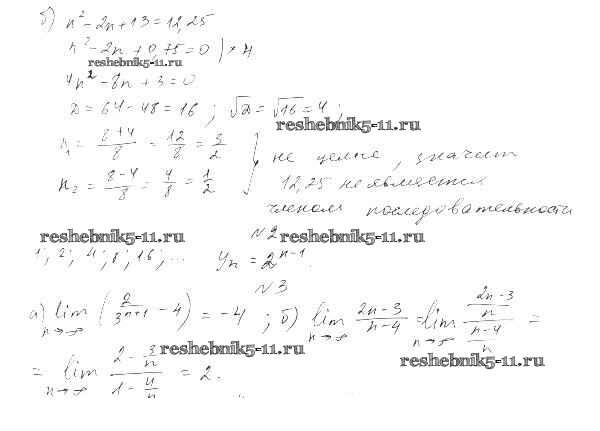 б) n² - 2n + 13 = 12,25
n² - 2n + 0,75 = 0 | × 4
reshebnik5-11.ru
4n² - 8n + 3 = 0
D = 64 - 48 = 16 ; √D = √16 = 4 ;
reshebnik5-11.ru
n₁ = (8+4)/8 = 12/8 = 3/2
n₂ = (8-4)/8 = 4/8 = 1/2
не целые, значит
12,25 не является
членом последовательности
reshebnik5-11.ru
№2
1; 2; 4; 8; 16; ... yₙ = 2ⁿ⁻¹.
№3
а) lim n→∞ (2/3ⁿ⁺¹ - 4) = -4 ; б) lim n→∞ (2n-3)/(n-4) = lim n→∞ ((2n-3)/n)/((n-4)/n) =
reshebnik5-11.ru
reshebnik5-11.ru
= lim n→∞ (2 - 3/n)/(1 - 4/n) = 2.